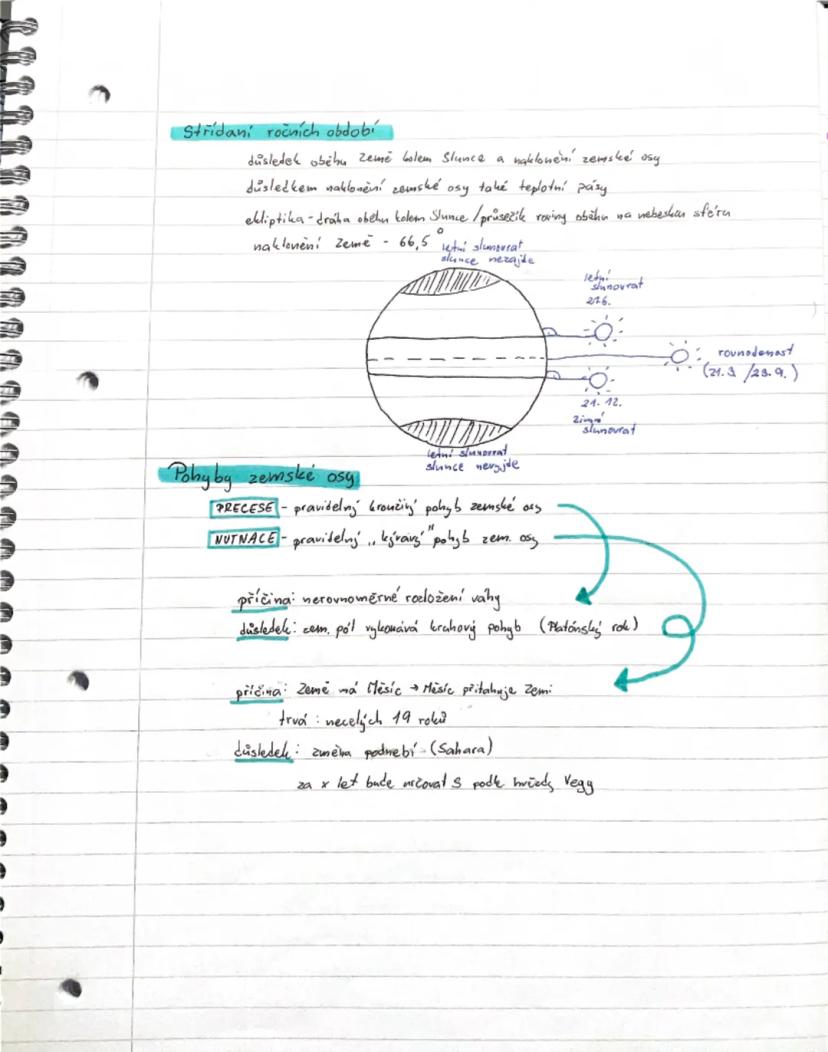 Střídaní ročních období
důsledek oběhu Země kolem Slunce a naklonění zemské osy
důsledkem naklonění zemské osy také teplotní pásy
ekliptika - dráha oběhu kolem Slunce / průsečík roviny oběhu na nebeskou sféru
naklonění Země - 66,5°
letní slunovrat
slunce nezajde
letní
slunovrat
21.6.
rovnodennost
(21.3 /23.9.)
21.12.
zimní
slunovrat
letní slunovrat
slunce nevyjde
Pohyby zemské osy
PRECESE - pravidelný krouživý pohyb zemské osy
NUTNACE - pravidelný „kývavý" pohyb zem. osy
příčina: nerovnoměrné rozložení váhy
důsledek: zem. pól vykonává kruhový pohyb (Platónský rok)
příčina: Země má Měsíc → Měsíc přitahuje Zemi
trvá: necelých 19 roků
důsledek: změna podnebí (Sahara)
za x let bude určovat S podle hvězdy Vegy